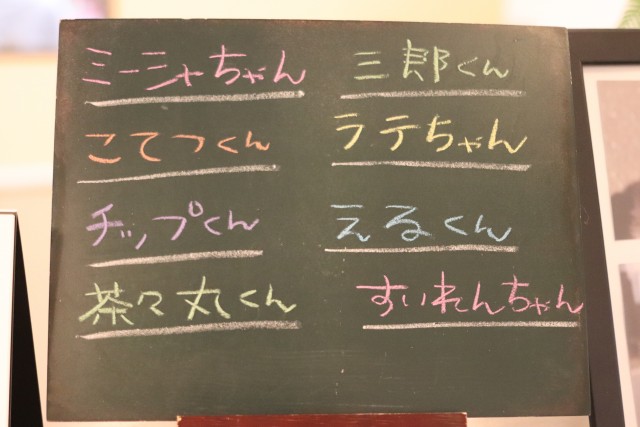 ミーシャちゃん
三郎くん
こてつくん
ラテちゃん
チップくん
えるくん
茶々丸くん
すいれんちゃん